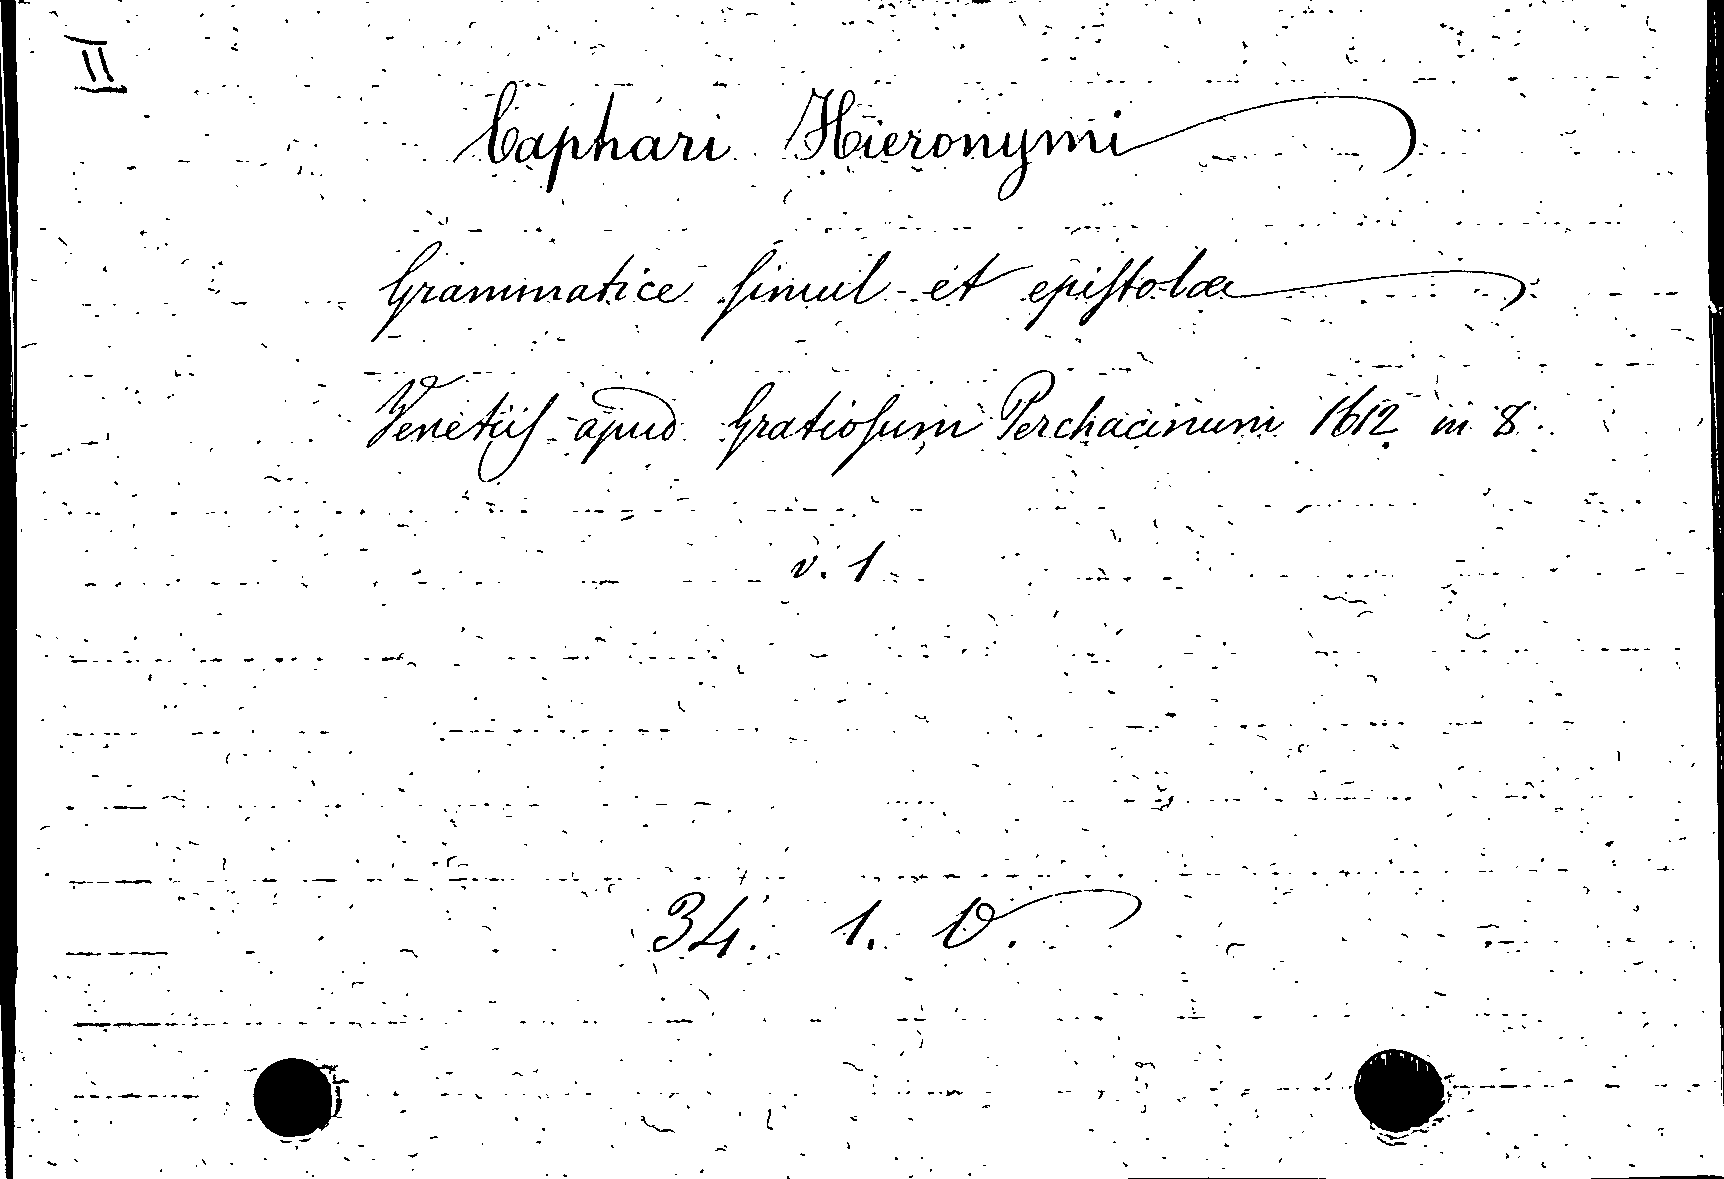 II
Caphari Hieronymi
Grammatice ſimul et epiſtolæ
Venetiiſ apud Gratioſum Perchacinum 1612 in 8.
v. 1
34. 1. D.